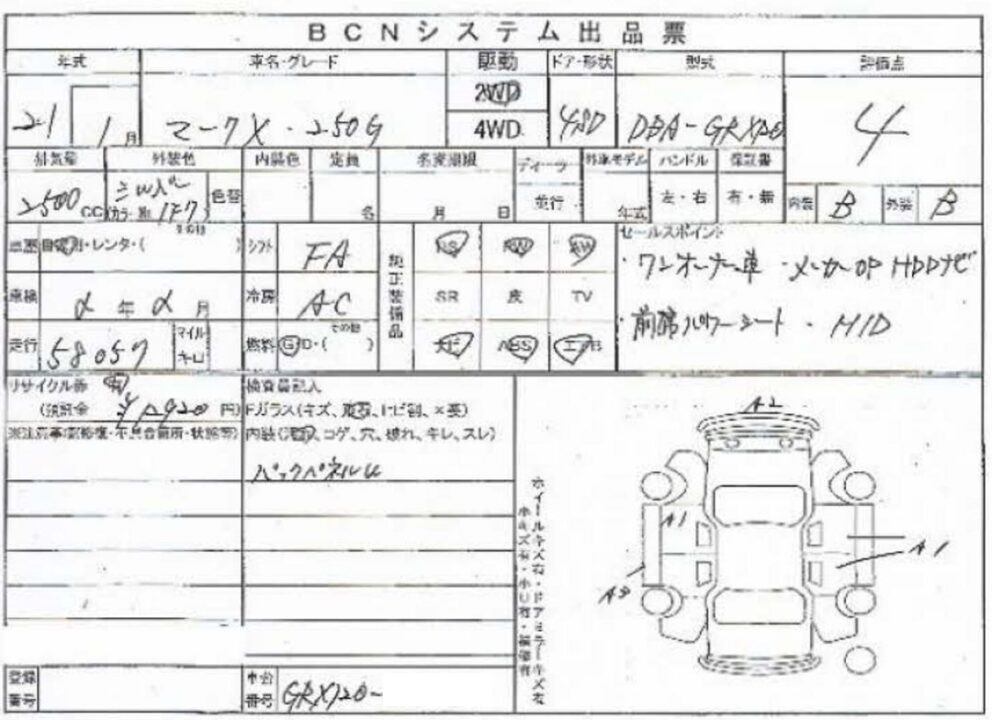 BCNシステム出品票
年式 車名・グレード 駆動 ドア・形状 型式 評価点
21 1月 マークX・250G 2WD 4WD 4SD DBA-GRX120 4
排気量 外装色 内装色 定員 名変期限 ディーラー 外車モデル ハンドル 保証書
2500CC (カラーNo. 1F7) 色替 名 月 日 並行 年式 左・右 有・無 内装 B 外装 B
車歴 自家用・レンタ・( その他 ) シフト FA 純正装備品 PS PW AW セールスポイント
・ワンオーナー車 ・メーカーOP HDDナビ
車検 年 月 冷房 AC SR 皮 TV
・前席パワーシート ・HID
走行 58057 マイル キロ 燃料 G・D・( その他 ) ナビ ABS エアB
リサイクル券 有 検査員記入
(預託金 円) Fガラス(キズ、飛石、トビ割、×要)
※注意事項(修復・不具合箇所・状態等) 内装(汚れ、コゲ、穴、破れ、キレ、スレ)
バックパネルU
A2
A1
A1
A3
ホイールキズ有・ドアミラーキズ有
登録番号 車台番号 GRX120-